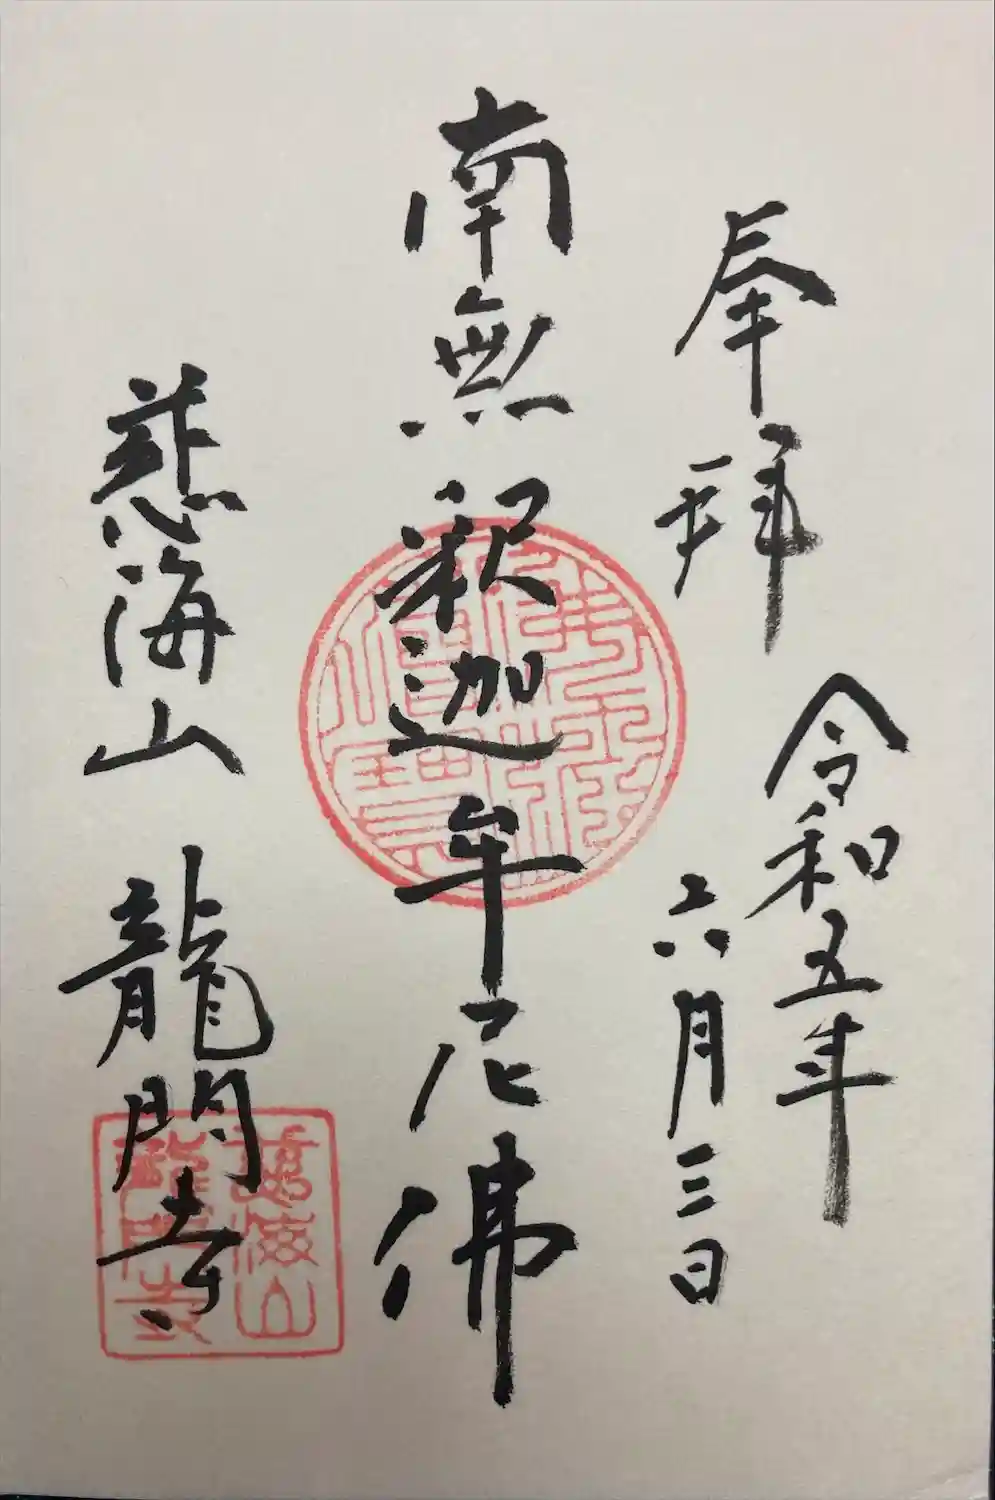 奉拝
令和五年
六月三日
南無釈迦牟尼佛
慈海山 龍門寺
佛法僧寶
慈海山
龍門寺